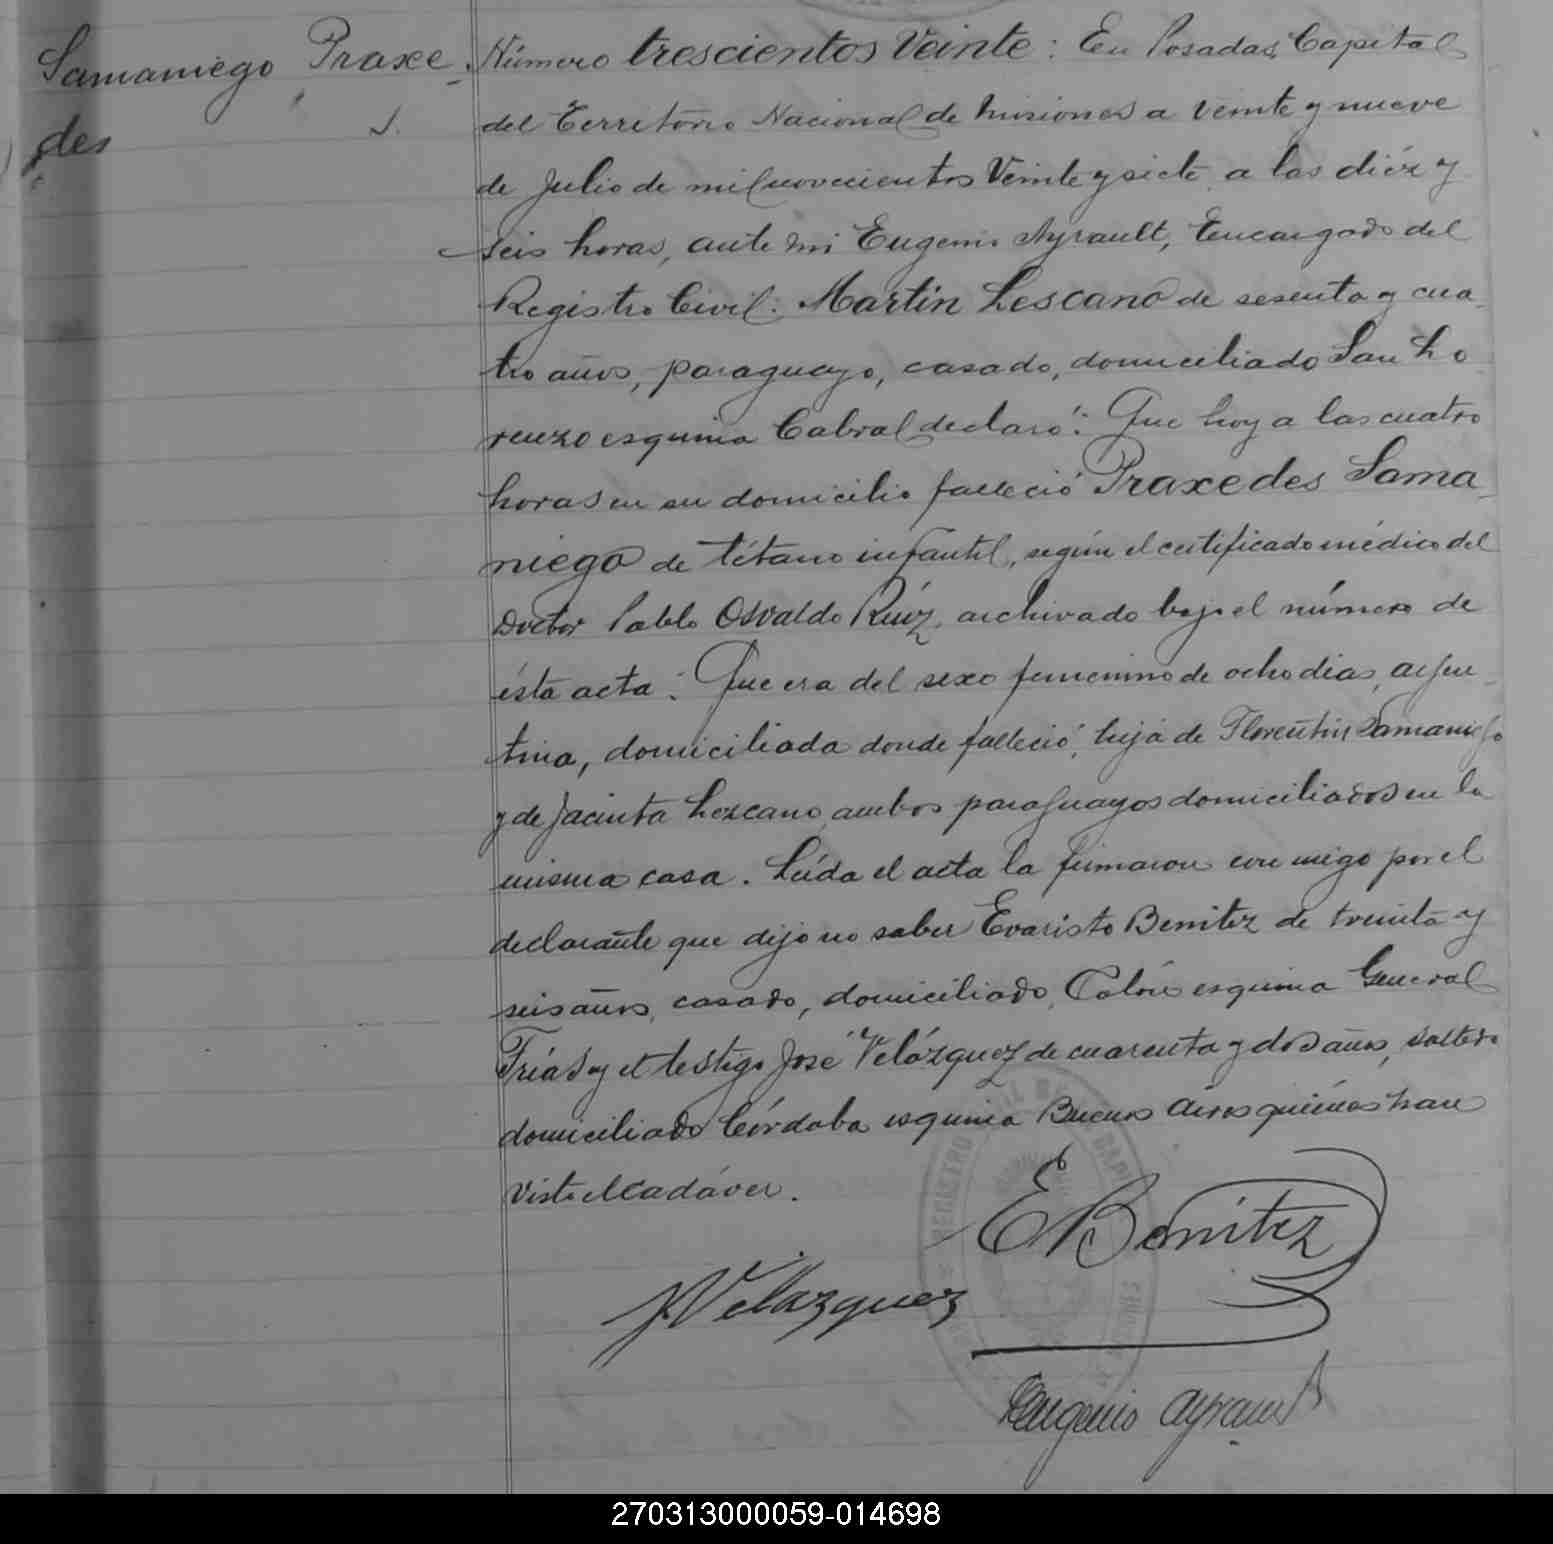 Samaniego Praxe-
des
Número trescientos Veinte: En Posadas, Capital
del Territorio Nacional de Misiones a veinte y nueve
de Julio de mil novecientos Veinte y siete a las diéz y
seis horas, ante mi Eugenio Ayrault, Encargado del
Registro Civil: Martin Lescano de sesenta y cua-
tro años, paraguayo, casado, domiciliado San Lo-
renzo esquina Cabral declaró: Que hoy a las cuatro
horas en su domicilio falleció Praxedes Sama-
niego de tétano infantil, según el certificado médico del
Doctor Pablo Osvaldo Ruíz, archivado bajo el número de
ésta acta: Que era del sexo femenino de ocho dias, argen-
tina, domiciliada donde falleció, hija de Florentin Samaniego
y de Jacinta Lezcano, ambos paraguayos domiciliados en la
misma casa. Leída el acta la firmaron con migo por el
declarante que dijo no saber Evaristo Benitez de treinta y
seis años, casado, domiciliado, Colón esquina General
Frías y el testigo José Velázquez de cuarenta y dos años, soltero
domiciliado Córdoba esquina Buenos Aires quiénes han
visto el cadáver.
E Benitez
J Velazquez
REGISTRO CIVIL
Eugenio Ayrault
270313000059-014698